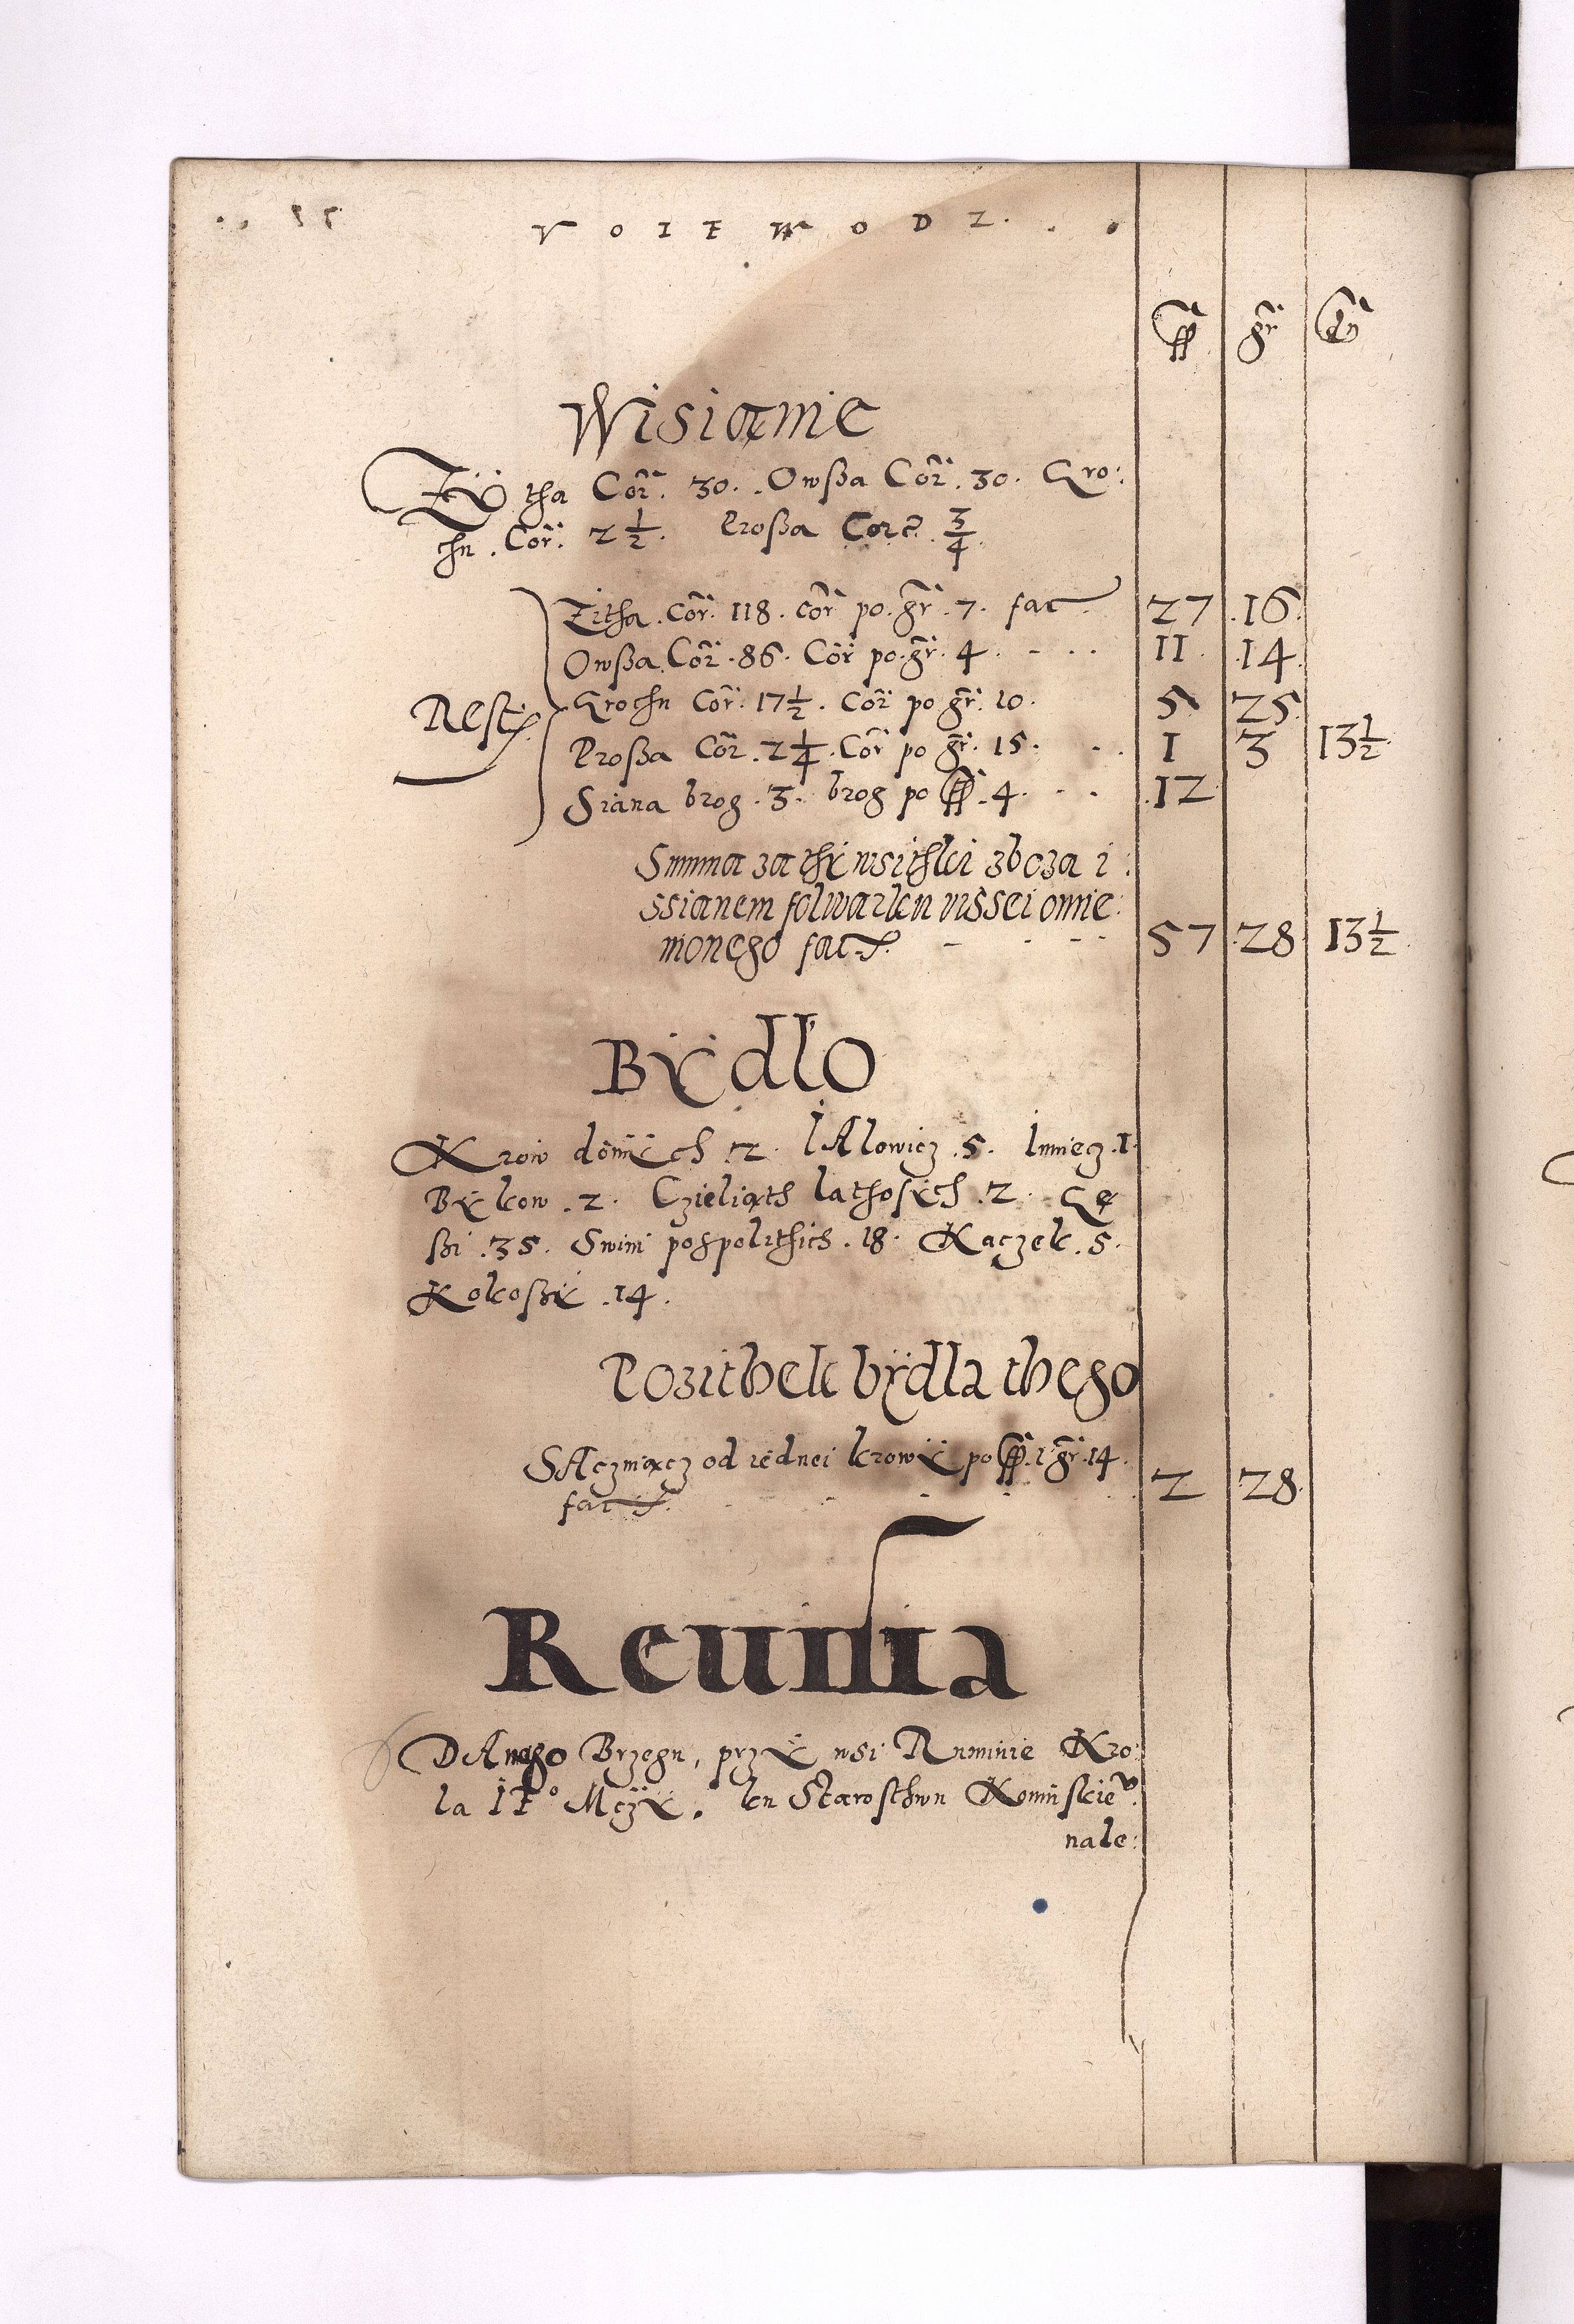 V O I E W O D Z.
ff gr dn
Wisianie
Zÿtha Cor: 30. Owßa Cor. 30. Gro:
chu. Cor: 2 1/2. Proßa Corc. 3/4.
Rest
Zitha. Cor. 118. cor po. gr. 7. fac 27 .16.
Owßa. Cor. 86. Cor po. gr. 4. - . . 11. .14.
Grochu Cor. 17 1/2. Cor po gr. 10. 5 25.
Proßa Cor. 2 1/4. Cor po gr. 15. . . 1 3 13 1/2.
Siana brog. 3. brog po ff. 4. . . .12.
Summa za thÿ wsithki zboza i:
ssianem folwarku wssei omie:
nionego fact. - . - - 57 .28. 13 1/2.
Bÿdło
Krow doinÿch .2. lAlowicz .5. Iuniecz .1.
Bÿkow .2. Czieliąth lathosich .2. Gę
ßi .35. Swini pospolithich .18. Kaczek .5.
Kokoßÿ .14.
Pozithek bÿdla thego
SAczniącz od iednei krowÿ po ff. 1 gr. 14.
fact. . . . . 2 .28.
Reumia
DAnego Brzegu, przÿ wsi Ruminie Kro:
la IE° Mczÿ. ku Starosthwu Koninskie°:
nale: